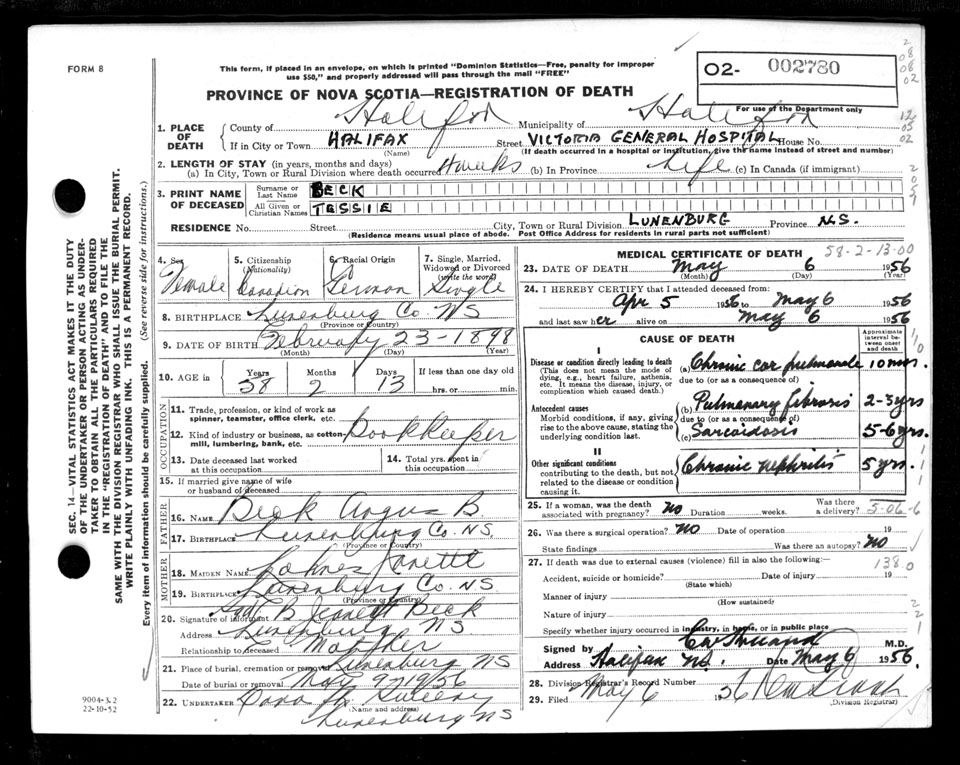 FORM 8
This form, if placed in an envelope, on which is printed "Dominion Statistics—Free, penalty for improper
use $50," and properly addressed will pass through the mail "FREE"
O2- 002780
PROVINCE OF NOVA SCOTIA—REGISTRATION OF DEATH
For use of the Department only
1. PLACE OF DEATH
County of Halifax Municipality of Halifax
If in City or Town HALIFAX Street VICTORIA GENERAL HOSPITAL House No.
(Name) (If death occurred in a hospital or institution, give the name instead of street and number)
2. LENGTH OF STAY (in years, months and days)
(a) In City, Town or Rural Division where death occurred 4 weeks (b) In Province Life (c) In Canada (if immigrant)
3. PRINT NAME OF DECEASED
Surname or Last Name BECK
All Given or Christian Names TESSIE
RESIDENCE No. Street City, Town or Rural Division LUNENBURG Province N.S.
(Residence means usual place of abode. Post Office Address for residents in rural parts not sufficient)
4. Sex Female
5. Citizenship (Nationality) Canadian
6. Racial Origin German
7. Single, Married, Widowed or Divorced (write the word) Single
8. BIRTHPLACE Lunenburg Co. NS
(Province or Country)
9. DATE OF BIRTH February 23-1898
(Month) (Day) (Year)
10. AGE in Years 58 Months 2 Days 13 If less than one day
hrs. or min.
OCCUPATION
11. Trade, profession, or kind of work as
spinner, teamster, office clerk, etc.
12. Kind of industry or business, as cotton-
mill, lumbering, bank, etc. Bookkeeper
13. Date deceased last worked
at this occupation
14. Total yrs. spent in
this occupation
15. If married give name of wife
or husband of deceased
FATHER
16. NAME Beck Angus B.
17. BIRTHPLACE Lunenburg Co. N.S.
(Province or Country)
MOTHER
18. MAIDEN NAME Lohnes Janette
19. BIRTHPLACE Lunenburg Co. NS
(Province or Country)
20. Signature of informant B Jennett Beck
Address Lunenburg NS
Relationship to deceased Mother
21. Place of burial, cremation or removal Lunenburg, NS
Date of burial or removal May 9 1956
22. UNDERTAKER Sweeny
(Name and address)
Lunenburg NS
MEDICAL CERTIFICATE OF DEATH 58-2-13-00
23. DATE OF DEATH May 6 1956
(Month) (Day) (Year)
24. I HEREBY CERTIFY that I attended deceased from:
Apr 5 1956 to May 6 1956
and last saw her alive on May 6 1956
CAUSE OF DEATH
Approximate interval between onset and death
I
Disease or condition directly leading to death
(This does not mean the mode of
dying, e.g., heart failure, asthenia,
etc. It means the disease, injury, or
complication which caused death.)
(a) Chronic cor pulmonale 10 mos.
due to (or as a consequence of)
Antecedent causes
Morbid conditions, if any, giving
rise to the above cause, stating the
underlying condition last.
(b) Pulmonary fibrosis 2-3 yrs
due to (or as a consequence of)
(c) Sarcoidosis 5-6 yrs.
II
Other significant conditions
contributing to the death, but not
related to the disease or condition
causing it.
Chronic nephritis 5 yrs.
25. If a woman, was the death
associated with pregnancy? No Duration weeks. Was there
a delivery? 5-06-6
26. Was there a surgical operation? No Date of operation 19
State findings Was there an autopsy? No
27. If death was due to external causes (violence) fill in also the following:— 138.0
Accident, suicide or homicide? Date of injury 19
(State which)
Manner of injury
(How sustained)
Nature of injury
Specify whether injury occurred in industry, in home, or in public place
Signed by M.D.
Address Halifax N.S. Date May 6 1956.
28. Division Registrar's Record Number
29. Filed May 6 1956
(Division Registrar)
SEC. 14—VITAL STATISTICS ACT MAKES IT THE DUTY
OF THE UNDERTAKER OR PERSON ACTING AS UNDER-
TAKER TO OBTAIN ALL THE PARTICULARS REQUIRED
IN THE "REGISTRATION OF DEATH" AND TO FILE THE
SAME WITH THE DIVISION REGISTRAR WHO SHALL ISSUE THE BURIAL PERMIT.
WRITE PLAINLY WITH UNFADING INK. THIS IS A PERMANENT RECORD.
Every item of information should be carefully supplied. (See reverse side for instructions.)
9004-3.2
22-10-52